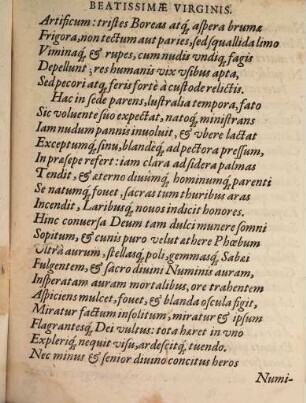 BEATISSIMÆ VIRGINIS.
Artificum: tristes Boreas atq́, aspera brumæ
Frigora, non tectum aut paries, sed squallida limo
Viminaq́, & rupes, cum nudis vndiq, fagis
Depellunt; res humanis vix vsibus apta,
Sed pecori atq́, feris fortè à custode relictis.
Hac in sede parens, lustralia tempora, fato
Sic voluente suo expectat, natoq́, ministrans
Iam nudum pannis inuoluit, & vbere lactat
Exceptumq́, sinu, blandeq́, ad pectora pressum,
In præsepe refert: iam clara ad sidera palmas
Tendit, & æterno diuûmq́, hominumq́, parenti
Se natumq́, fouet, sacras tum thuribus aras
Incendit, Laribusq́, nouos indicit honores.
Hinc conuersa Deum tam dulci munere somni
Sopitum, & cunis puro velut æthere Phœbum
Vltrà aurum, stellasq́, poli, gemmasq́, Sabæas
Fulgentem, & sacro diuini Numinis auram,
Insperatam auram mortalibus, ore trahentem
Aspiciens mulcet, fouet, & blanda oscula figit,
Miratur factum insolitum, miratur & ipsum
Flagrantesq́, Dei vultus: tota hæret in vno
Expleriq́, nequit visu, ardescitq́, tuendo.
Nec minus & senior diuino concitus heros
Numi-